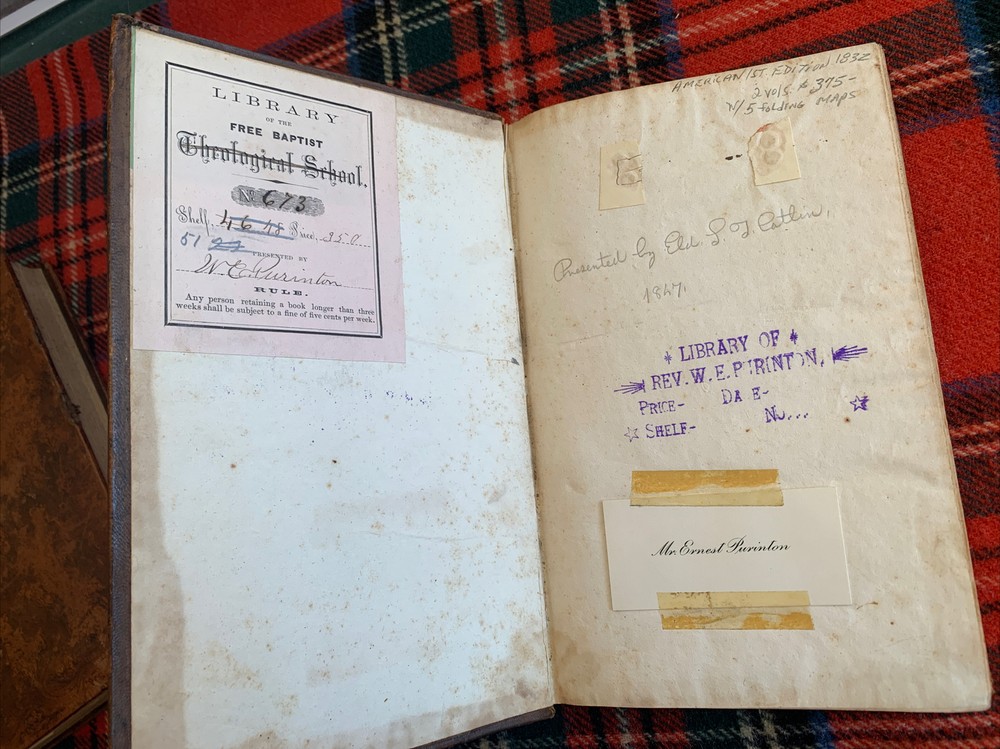 LIBRARY
OF THE
FREE BAPTIST
Theological School,
No 673
Shelf, 46 48 Price, 350
51 22
PRESENTED BY
W. E. Purinton
RULE.
Any person retaining a book longer than three
weeks shall be subject to a fine of five cents per week.
AMERICAN 1ST. EDITION 1832
2 vols. $375-
W/ 5 FOLDING MAPS
Presented by Eld Catlin,
1847.
LIBRARY OF
REV. W. E. PURINTON,
PRICE- DA E-
SHELF- No...
Mr. Ernest Purinton